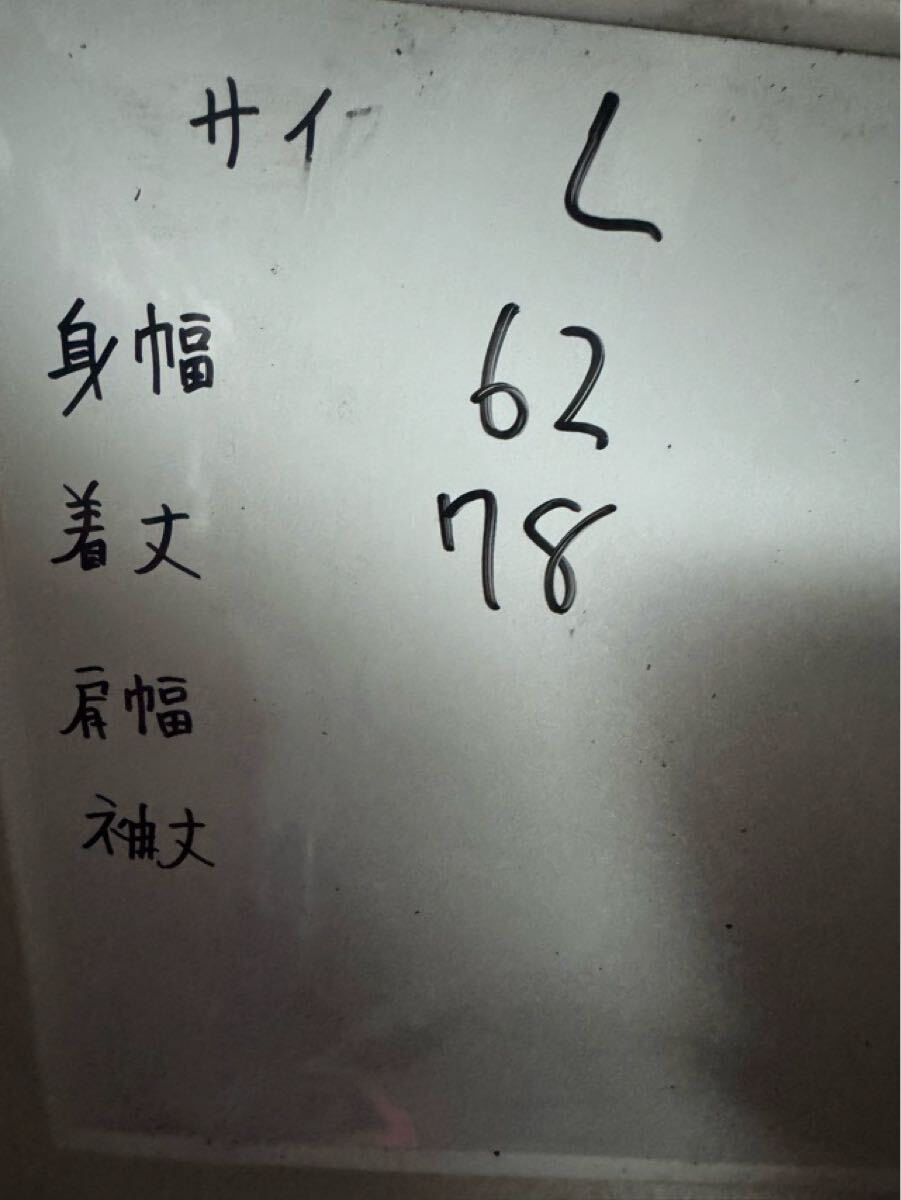 サイ L
身幅 62
着丈 78
肩幅
袖丈